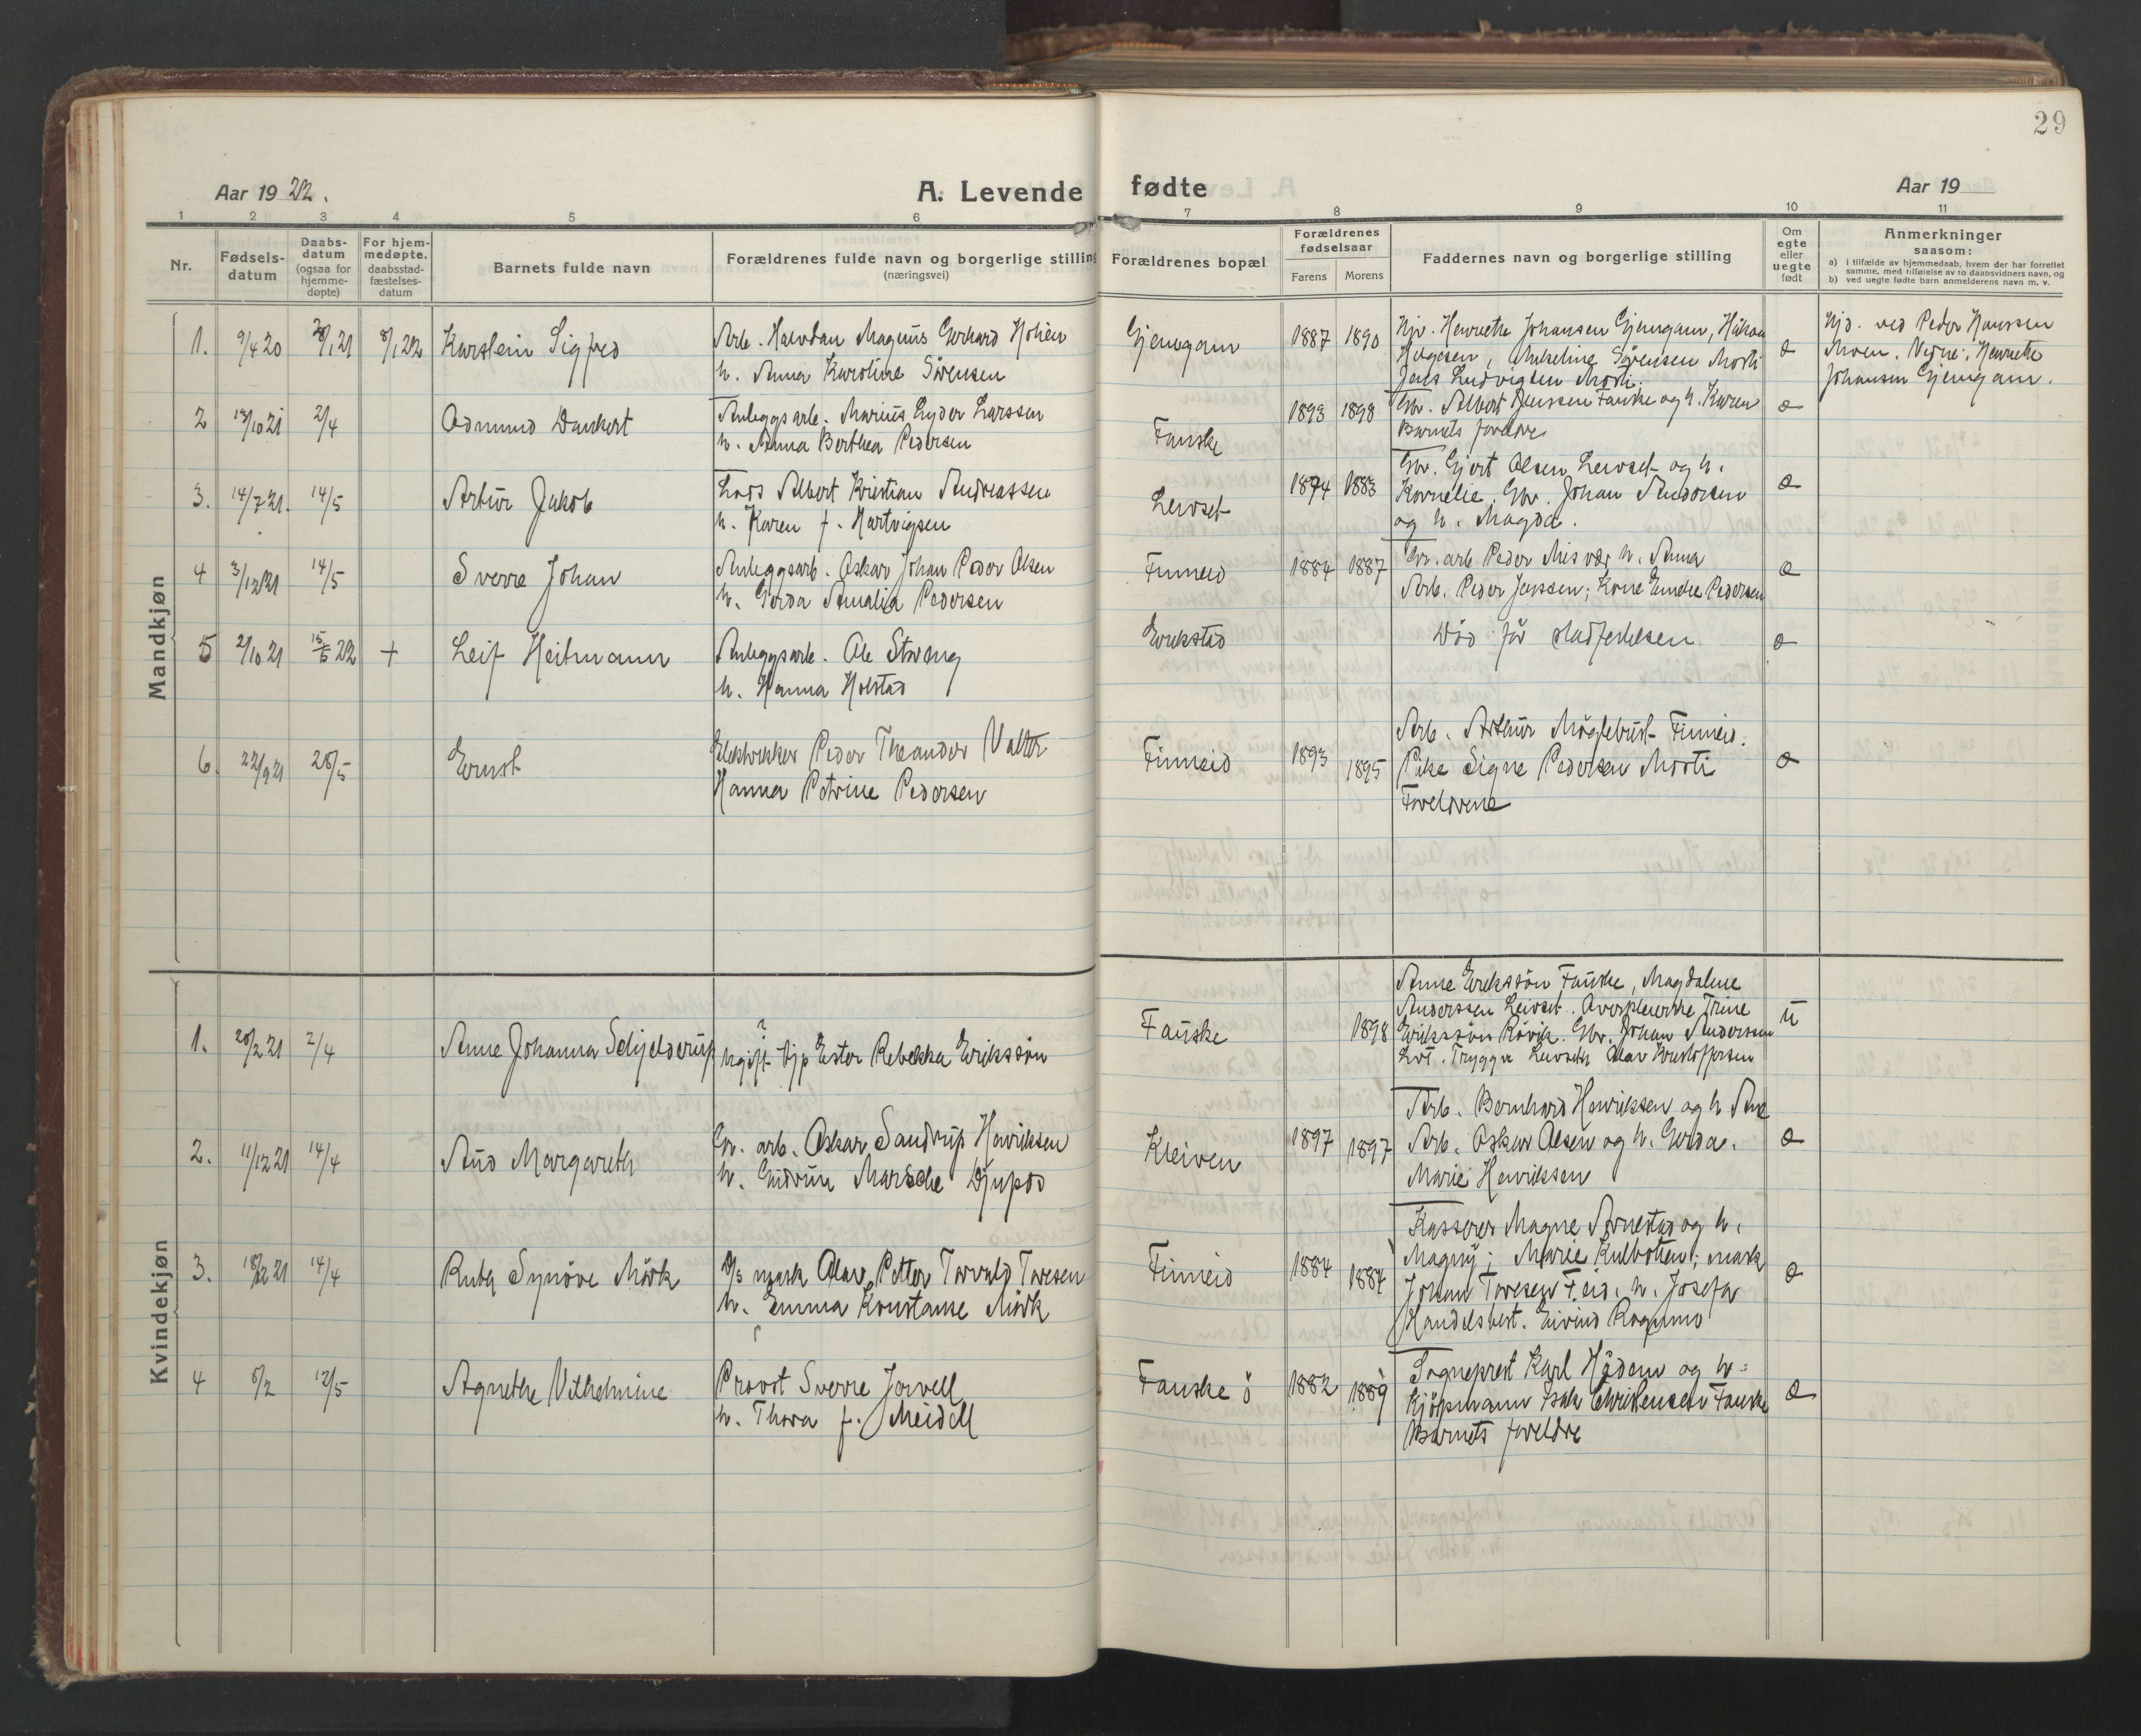 29
Aar 1922.
A. Levende fødte
Aar 19
1 2 3 4 5 6 7 8 9 10 11
Nr.
Fødsels-
datum
Daabs-
datum
(ogsaa for
hjemme-
døpte)
For hjem-
medøpte.
daabsstad-
fæstelses-
datum
Barnets fulde navn
Forældrenes fulde navn og borgerlige stilling
(næringsvei)
Forældrenes bopæl
Forældrenes
fødselsaar
Farens Morens
Faddernes navn og borgerlige stilling
Om
egte
eller
uegte
født
Anmerkninger
saasom:
a) i tilfælde av hjemmedaab, hvem der har forrettet
samme, med tilføielse av to daabsvidners navn, og
b) ved uegte fødte barn anmelderens navn m. v.
Mandkjøn
1. 9/4 20 28/1 21 8/1 22 Karstein Sigfred
Arb. Halvdan Magnus Gerhard Holien
h. Anna Karoline Sørensen
Gjemgam 1887 1890
Hjv. Henriette Johansen Gjemgam, Håkon
Helgesen, Mikeline Sørensen Mosti
Jens Ludvigsen Mosti.
e
Hjd. ved Peder Hanssen
Moen. Vidne: Henriette
Johansen Gjemgam.
2 13/10 21 2/4 Odmund Dankert
Anleggsarb. Marius Lyder Larssen
h. Anna Berthea Pedersen
Fauske 1893 1898
Gbr. Albert Jenssen Fauske og h. Karen
Barnets foreldre
e
3. 14/7 21. 14/5 Artur Jakob
Lods Albert Kristian Andreassen
h. Karen f. Hartvigsen
Leivset 1874 1883
Gbr. Gjert Olsen Leivset og h.
Kornelie. Gbr. Johan Andersen
og h. Magda.
e
4 3/12 21 14/5 Sverre Johan
Anleggsarb. Oskar Johan Peder Olsen
h. Gerda Amalia Pedersen
Finneid 1884 1887
Gr. arb. Peder Misvær h. Anna
Arb. Peder Jenssen; Kone Emelie Pedersen
e
5 2/10 21 15/5 22 + Leif Heitmann
Anleggsarb. Ole Strømg
h. Hanna Holstad
Erikstad
Død før stadfestelsen
e
6. 22/9 21 28/5 Ernst
Elektrikker Peder Theander Valter
Hanna Petrine Pedersen
Finneid 1893 1895
Arb. Arthur Møglebust Finneid.
Pike Signe Pedersen Mosti
Foreldrene
e
Kvindekjøn
1. 28/2 21 2/4 Anne Johanna Schjelderup
?
Ugift tjp Ester Rebekka Erikssøn
Fauske 1898
Anne Erikssøn Fauske, Magdalene
Anderssen Leivset. Trine
Erikssøn Røvik. Gbr. Johan Anderssen
Lvs. Trygve Leivseth Olav Kristoffersen
u
2. 11/12 21 14/4 Aud Margareth
Gr. arb. Oskar Sandrup Henriksen
h. Gudrun Marselie Djupos
Kleiven 1897 1897
Arb. Bernhard Henriksen og h Ane
Arb. Oskar Olsen og h. Gerda.
Marie Henriksen
e
3. 18/12 21 14/4 Ruth Synøve Mørk
D/s mask Olav Petter Torvald Toresen
h. Emma Konstanse Mørk
Finneid 1884 1884
Kasserer Magne Arnestad og h.
Magny; Marie Kulbotten; mask
Johan Toresen F.eid. h. Josefa
Handelsbest. Eivind Rognmo
e
4 8/2 12/5 Agnethe Vilhelmine
Provst Sverre Jervell
h. Thora f. Meidell
Fauske 1882 1889
Sogneprest Karl Hådem og h.
Kjøpmann Isak Christensen Fauske
Barnets foreldre
e